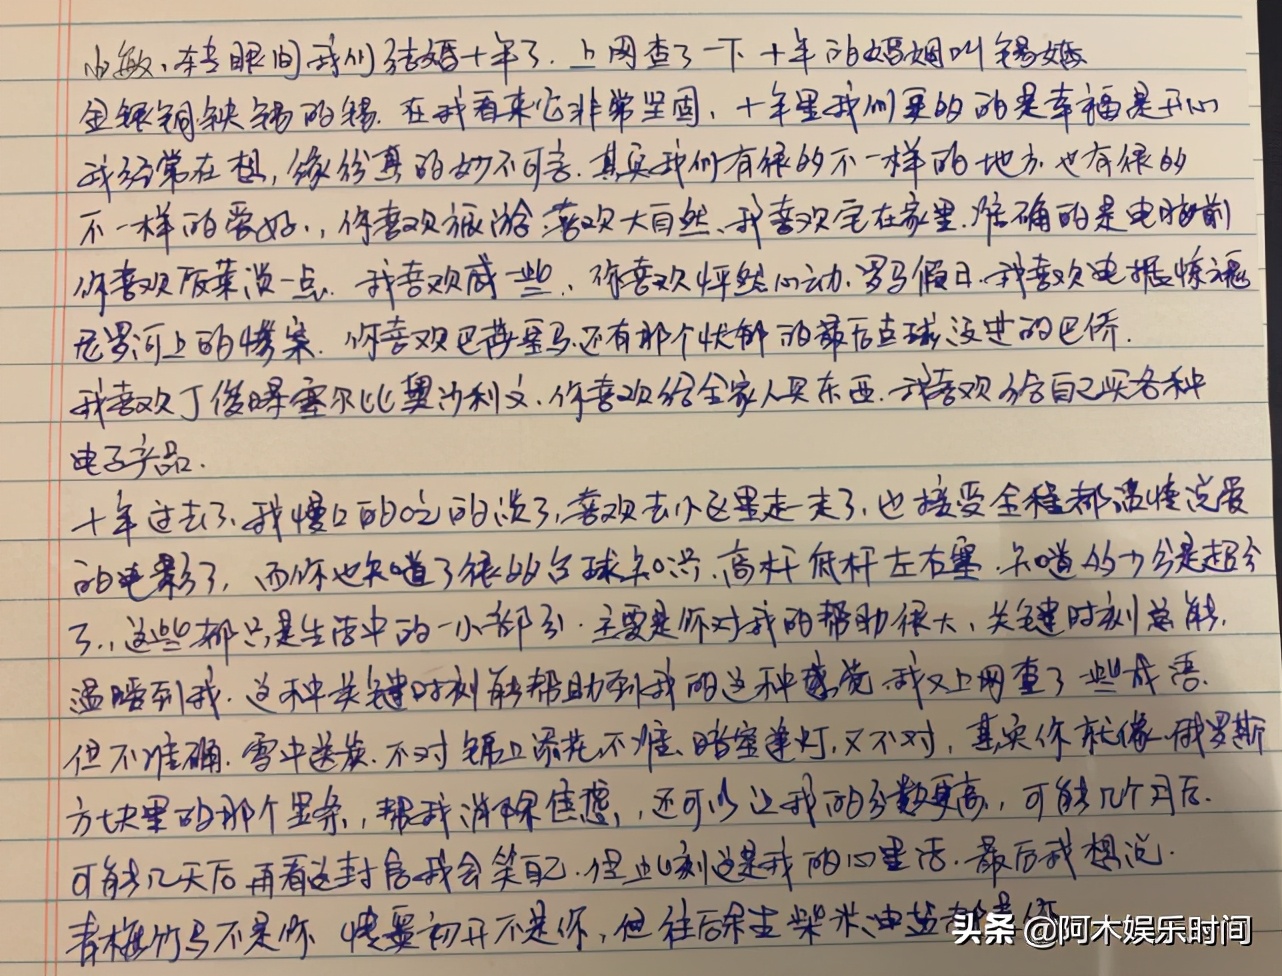 小敏、转眼间我们结婚十年了．上网查了一下十年的婚姻叫锡婚
金银铜铁锡的锡．在我看来它非常坚固，十年里我们更多的是幸福是开心
我经常在想，缘份真的妙不可言．其实我们有很多不一样的地方也有很多
不一样的爱好．，你喜欢旅游 喜欢大自然、我喜欢宅在家里．准确的是电脑前
你喜欢饭菜淡一点．我喜欢咸一些、你喜欢怦然心动．罗马假日．我喜欢电锯惊魂
尼罗河上的惨案．你喜欢巴蒂 还有那个忧郁的最后点球没进的巴乔．
我喜欢丁俊晖塞尔比奥沙利文．你喜欢给全家人买东西．我喜欢给自己买各种
电子产品．
十年过去了．我慢口的吃的淡了，喜欢去小区里走一走了，也接受全程都温情说爱
的电影了，而你也知道了很多台球知识．高杆低杆左右塞．知道多少分是超分
了．，这些都只是生活中的一小部分．主要是你对我的帮助很大、关键时刻总能．
温暖到我．这种关键时刻能帮助到我的这种感觉．我又上网查了一些成语．
但不准确．雪中送炭．不对 锦上添花不准、暗室逢灯，又不对，其实你就像．俄罗斯
方块里的那个竖条，帮我消除焦虑，还可以让我的分数更高，可能几个月后．
可能几天后再看这封信我会笑自己．但此刻这是我的心里话．最后我想说．
青梅竹马不是你 情窦初开不是你，但往后余生柴米油盐都是你
头条 @阿木娱乐时间